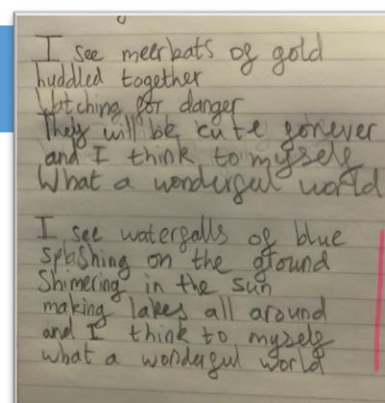 I see meerkats of gold
huddled together
Watching for danger
They will be cute forever
and I think to myself
What a wonderful world
I see waterfalls of blue
splashing on the ground
Shimering in the sun
making lakes all around
and I think to myself
what a wonderful world